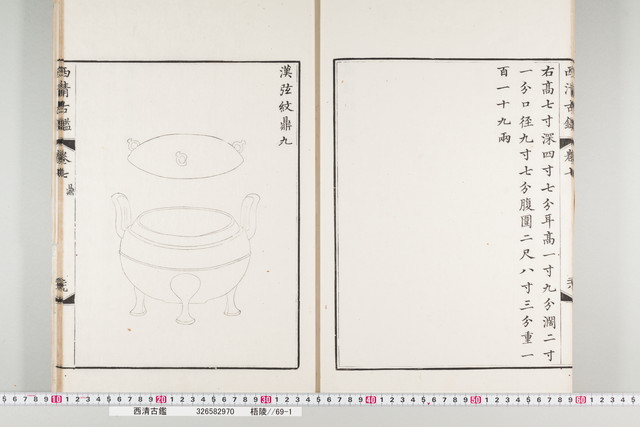 右高七寸深四寸七分耳高一寸九分濶二寸
一分口徑九寸七分腹圍二尺八寸三分重一
百一十九兩
漢弦紋鼎九
西清古鑑
卷七
鼎
西清古鑑 326582970 梧陵//69-1